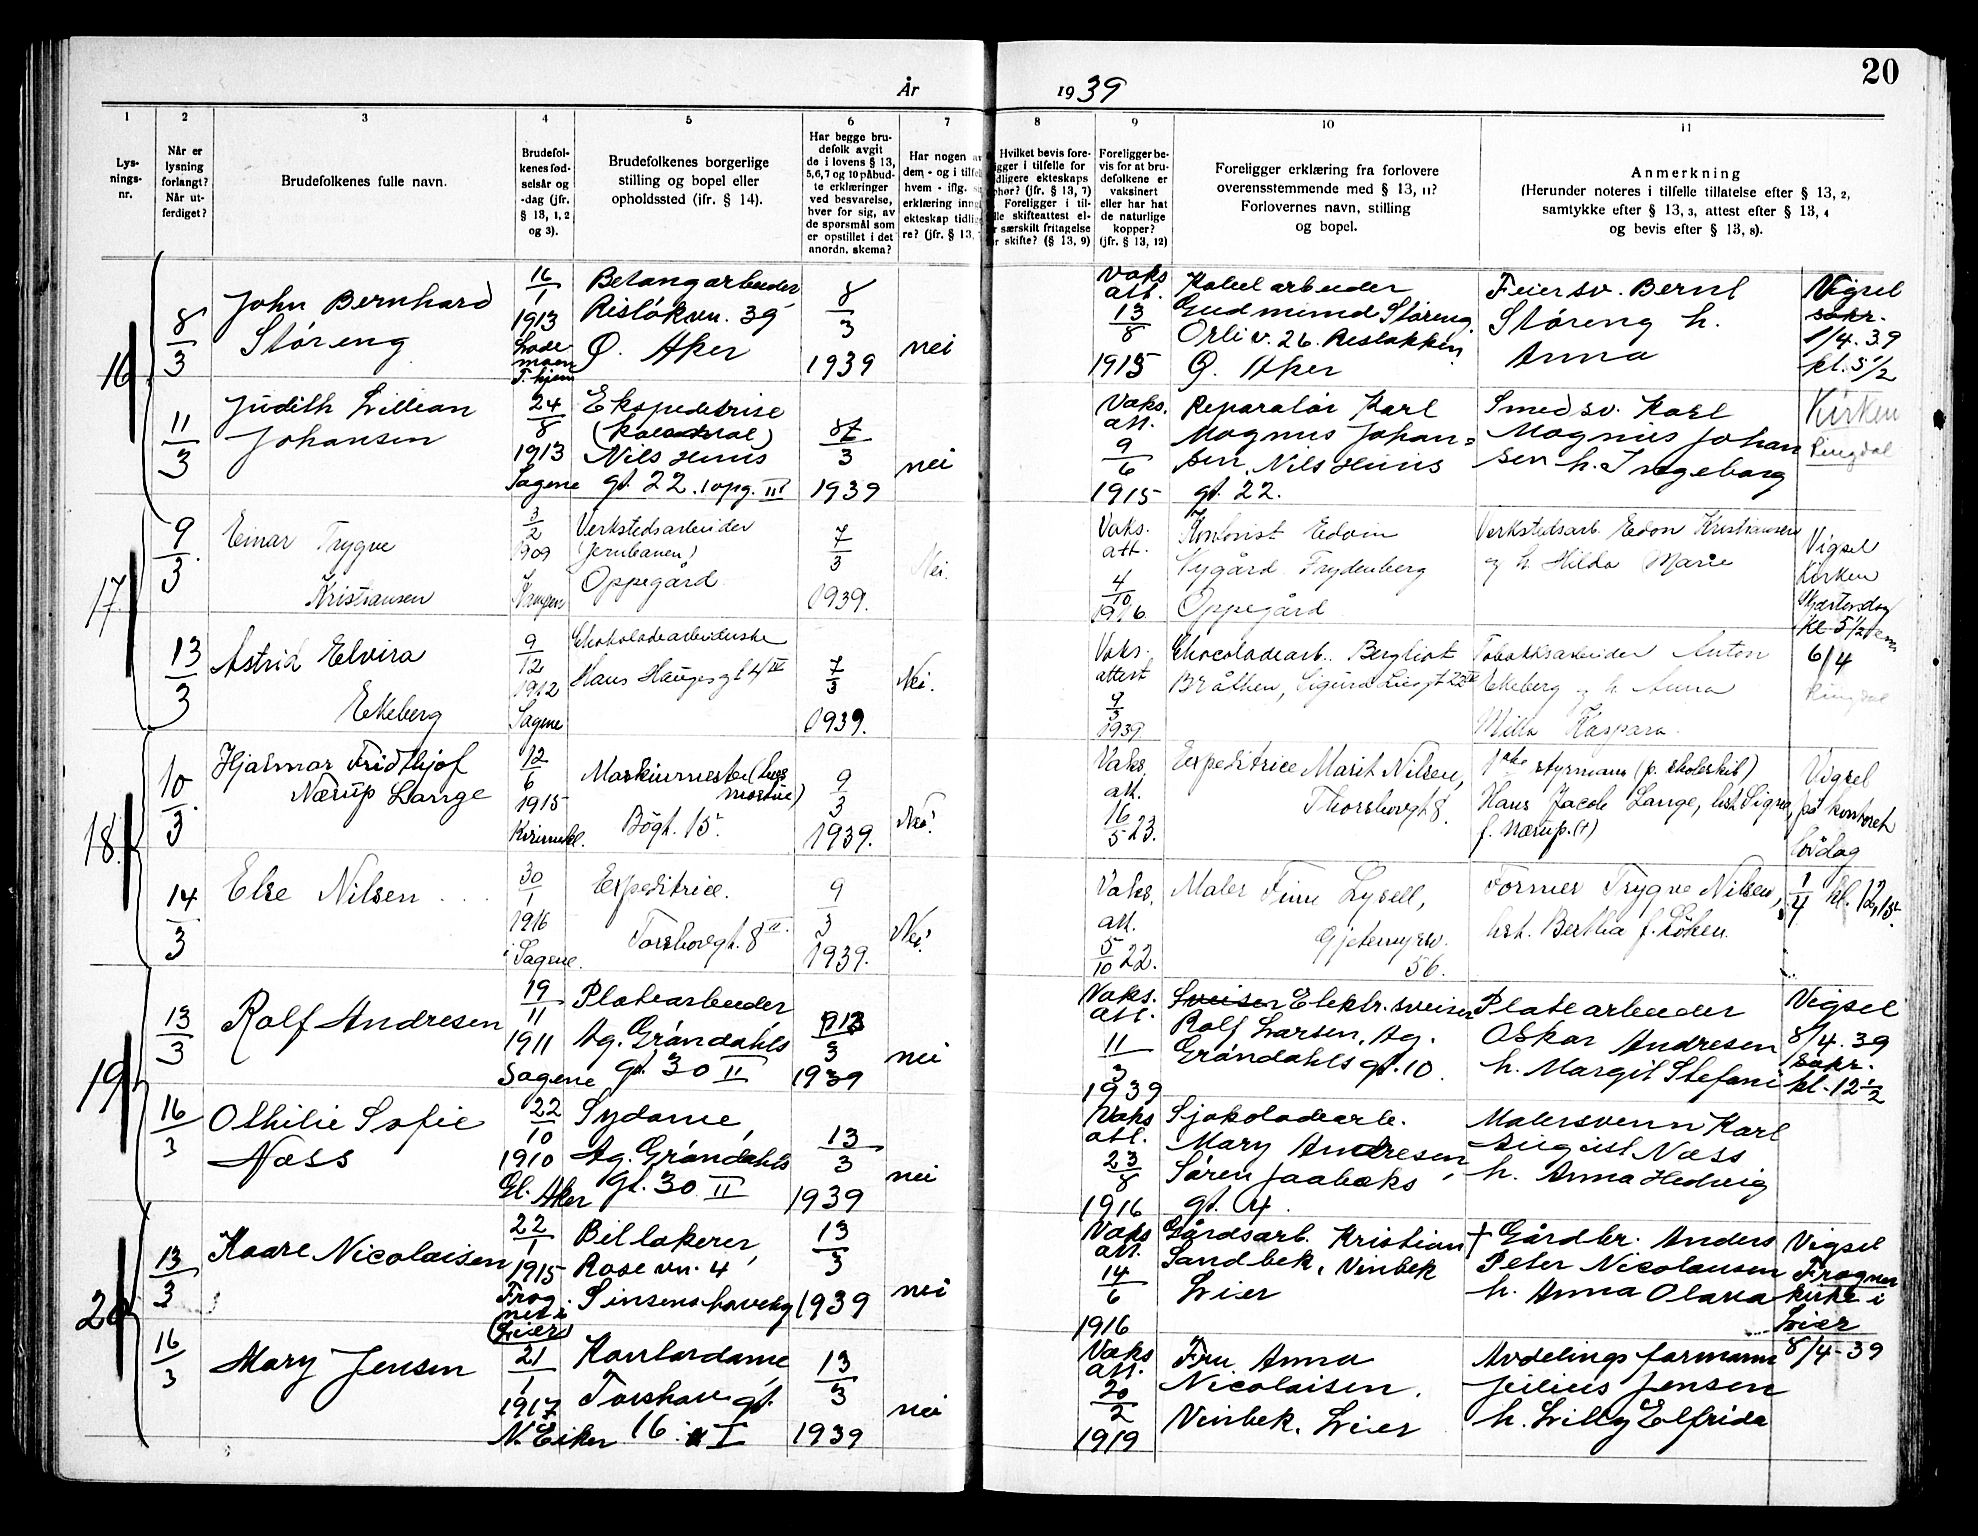 20
År 1939
1 2 3 4 5 6 7 8 9 10 11
Lys-
nings-
nr.
Når er
lysning
forlangt?
Når ut-
ferdiget?
Brudefolkenes fulle navn.
Brudefol-
kenes fød-
selsår og
-dag (jfr.
§ 13, 1, 2
og 3).
Brudefolkenes borgerlige
stilling og bopel eller
opholdssted (jfr. § 14).
Har begge bru-
defolk avgit
de i lovens § 13,
5,6,7 og 10 påbud-
te erklæringer
ved besvarelse,
hver for sig, av
de spørsmål som
er opstillet i det
anordn. skema?
Har nogen av
dem - og i tilfel
hvem - iflg.
erklæring inng
ekteskap tidlig
re? (jfr. § 13,
Hvilket bevis fore-
igger i tilfelle for
dligere ekteskaps
phør? (jfr. § 13, 7)
Foreligger i til-
lle skifteattest el-
r særskilt fritagelse
or skifte? (§ 13, 9)
Foreligger be-
vis for at bru-
defolkene er
vaksinert
eller har hat
de naturlige
kopper?
(jfr. § 13, 12)
Foreligger erklæring fra forlovere
overensstemmende med § 13, 11?
Forlovernes navn, stilling
og bopel.
Anmerkning
(Herunder noteres i tilfelle tillatelse efter § 13, 2,
samtykke efter § 13, 3, attest efter § 13, 4
og bevis efter § 13, 8).
16
8/3
John Bernhard
Støreng
16/1
1913
Lade
moen
T.hjem
Betongarbeider
Risløkvn. 39
Ø. Aker
8/3
1939
nei
Vaks
att.
13/8
1915
Kabelarbeider
Gudmund Støreng.
Orliv. 26. Risløkken
Ø. Aker
Feiersv. Bernt
Støreng h.
Anna
Vigsel
sakr.
1/4. 39
kl. 5 1/2
11/3
Judith Lillian
Johansen
24/8
1913
Sagene
Ekspeditrise
Nils Huus
gt. 22. opg. III
8/3
1939
nei
Vaks.
att.
9/6
1915
Reparatør Karl
Magnus Johan-
sen, Nils Huus
gt. 22.
Smedsv. Karl
Magnus Johan
sen h. Ingeborg
Kirken
Ringdal
17
9/3.
Einar Trygve
Kristiansen
3/2
1909
Verkstedsarbeider
(Jernbanen)
Oppegård
7/3
1939.
Nei.
Vaks.
att.
4/10
1916
Kontorist Edvin
Nygård Frydenberg
Oppegård
Verkstedsarb. Edon Kristiansen
og h. Hilda Marie
Vigsel
Kirken
Skjærtorsdag
kl 5 1/2 em
6/4
Ringdal
13/3
Astrid Elvira
Ekeberg
9/12
1912
Sagene
Chokoladearbeiderske
Hans Haugesgt 4 IV
7/3
1939.
Nei.
Vaks.
attest
9/3
1939
Chocoladearb. Bergliot
Bråthen, Sigurd Liesgt 22 IV
Tobakksarbeider Anton
Ekeberg og h. Anna
Milla Kaspara.
18.
10/3
Hjalmar Fridthjof
Nærup Lange
12/6
1915
Maskinmester
Bógt. 15
9/3
1939.
Nei.
Vaks.
att.
16/5 23.
Expeditrice Marit Nilsen,
Thorshovgt 8.
1ste styrmann (p. skoleskib)
Hans Jacob Lange, hst. Signe,
f. Nærup. (†)
Vigsel
på kontoret
lørdag
1/4 kl. 12,15.
14/3
Else Nilsen
30/1
1916
i Sagene.
Expeditrice.
Torshovgt. 8 II.
9/3
1939.
Nei.
Vaks.
att.
5/10 22.
Maler Finn Lysell,
Gjetemyrsv.
56.
Former Trygve Nilsen,
hst. Bertha f. Løken.
19
13/3
Rolf Andresen
19/11
1911
Sagene
Platearbeider
Ag. Grøndahls
gt. 30 II
13/3
1939
nei
Vaks.
att.
11/3
1939
Sveiser Elektr. sveiser
Rolf Larsen, Ag.
Grøndahls gt. 10.
Platearbeider
Oskar Andresen
h. Margit Stefani
Vigsel
8/4. 39
sakr.
kl. 12 1/2
16/3
Othilie Sofie
Næss
22/10
1910
Gl. Aker
Sydame,
Ag. Grøndahls
gt. 30 II
13/3
1939
nei
Vaks
att.
23/8
1916
Sjokoladearb.
Mary Andresen
Søren Jaabæks
gt. 4.
Malersvenn Karl
August Næss
h. Anna Hedvig
20
13/3
Kaare Nicolaisen
22/1
1915
Frog
ner i
(Lier)
Billakerer,
Rosevn. 4
Sinsenshavebg
13/3
1939
nei
Vaks
att.
14/6
1916
Gårdsarb. Kristian
Sandbek, Vinbek
Lier
† Gårdbr. Anders
Peter Nicolausen
h. Anna Olava
Vigsel
Frogner
kirke i
Lier
8/4-39
16/3
Mary Jensen
21/1
1917
N. Eiker
Kontordame,
Torshov gt.
16 I
13/3
1939
nei
Vaks
att.
20/2
1919
Fru Anna
Nicolaisen.
Vinbek, Lier
Avdelingsformann
Julius Jensen
h. Lilly Elfrida